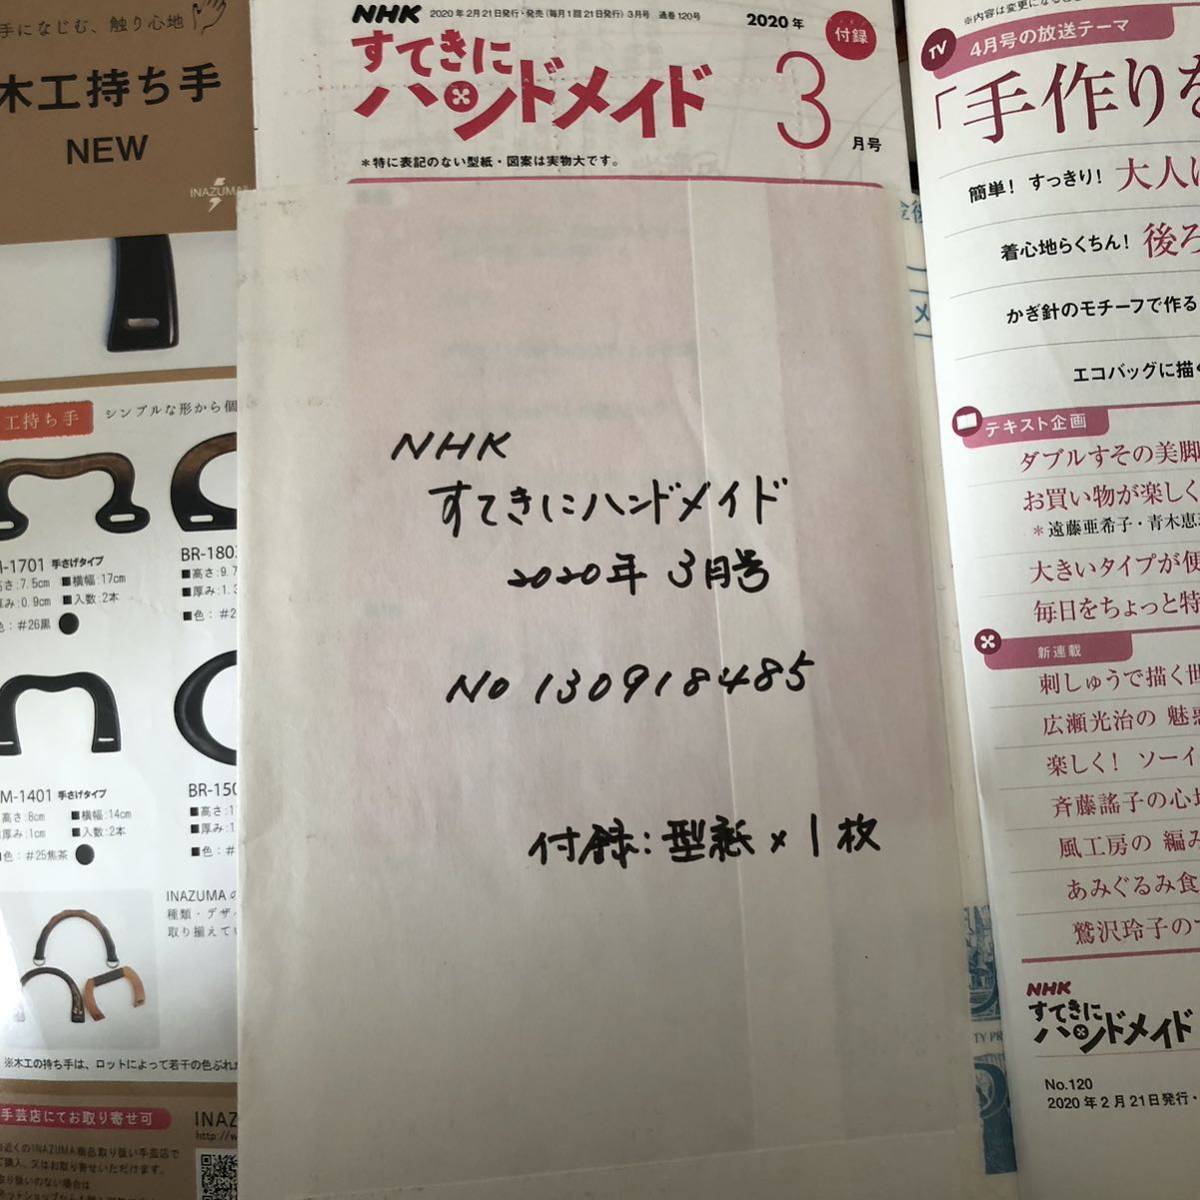 手になじむ、触り心地
木工持ち手
NEW
INAZUMA
工持ち手
シンプルな形から個
-1701 手さげタイプ
高さ:7.5cm ■横幅:17cm
厚み:0.9cm ■入数:2本
色：#26黒
BR-180
■高さ:9.7
■厚み:1.3
■色：#2
M-1401 手さげタイプ
高さ:8cm ■横幅:14cm
厚み:1cm ■入数:2本
色：#25焦茶
BR-150
■高さ:1
■厚み:1
■色：#
INAZUMAの
種類・デザ
取り揃えてい
※木工の持ち手は、ロットによって若干の色ぶれ
手芸店にてお取り寄せ可
近くのINAZUMA商品取り扱い手芸店で
ご購入、又はお取り寄せいただけます。
取り扱いのない場合は
INAZ
http://w
NHK 2020年2月21日発行・発売(毎月1回21日発行) 3月号 通巻120号
すてきに
ハンドメイド
2020年
3月号
付録
＊特に表記のない型紙・図案は実物大です。
NHK
すてきにハンドメイド
2020年 3月号
No 130918485
付録：型紙×1枚
※内容は変更になる
TV 4月号の放送テーマ
「手作りを
簡単！ すっきり！ 大人に
着心地らくちん！ 後ろ
かぎ針のモチーフで作る
エコバッグに描く
テキスト企画
ダブルすその美脚
お買い物が楽しく
＊遠藤亜希子・青木恵理
大きいタイプが便
毎日をちょっと特
新連載
刺しゅうで描く世
広瀬光治の 魅惑
楽しく！ ソーイ
斉藤謠子の心地
風工房の 編み
あみぐるみ食
鷲沢玲子の
NHK
すてきに
ハンドメイド
No.120
2020年2月21日発行・